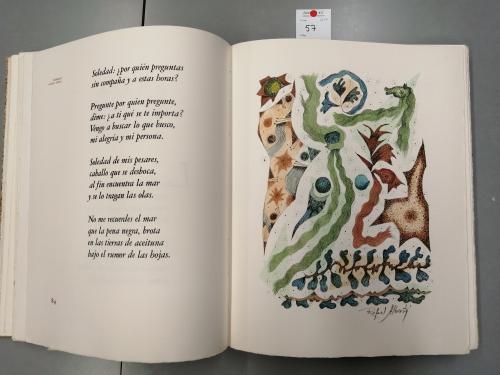 57
Soledad: ¿por quién preguntas
sin compaña y a estas horas?
Pregunte por quien pregunte,
dime: ¿a ti qué se te importa?
Vengo a buscar lo que busco,
mi alegría y mi persona.
Soledad de mis pesares,
caballo que se desboca,
al fin encuentra la mar
y se lo tragan las olas.
No me recuerdes el mar
que la pena negra, brota
en las tierras de aceituna
bajo el rumor de las hojas.
Rafael Alberti